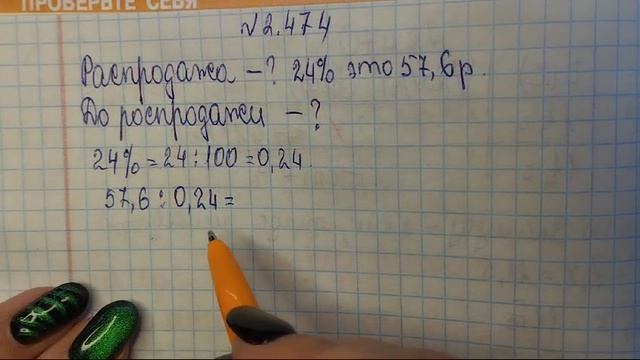 ПРОВЕРЬТЕ СЕБЯ
№2.474
Распродажа – ? 24% это 57,6р.
До роспродажи – ?
24% = 24 : 100 = 0,24.
57,6 : 0,24 =